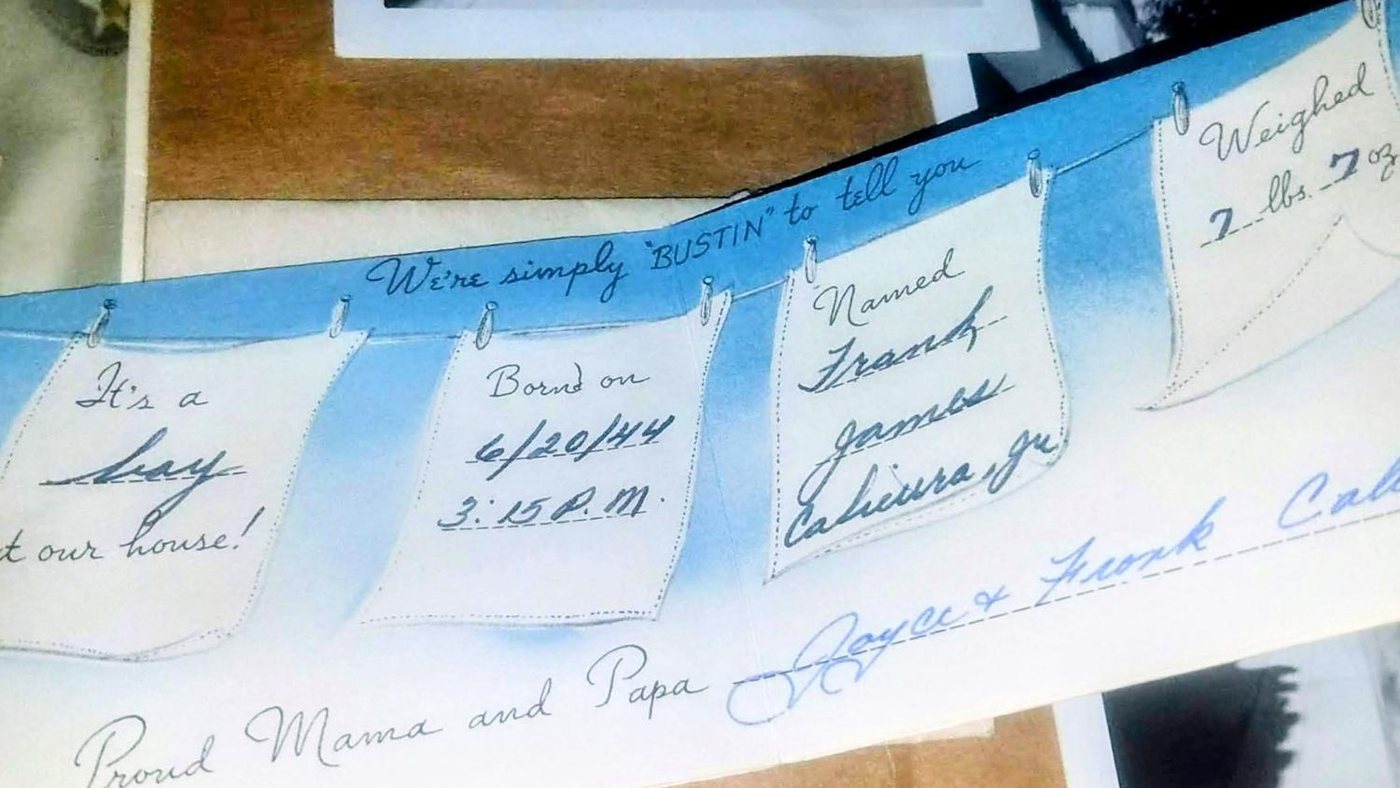 We're simply "BUSTIN" to tell you
It's a
boy
t our house!
Born on
6/20/44
3:15 P.M.
Named
Frank
James
Jr
Weighed
7 lbs. 7 oz
Proud Mama and Papa Joyce & Frank